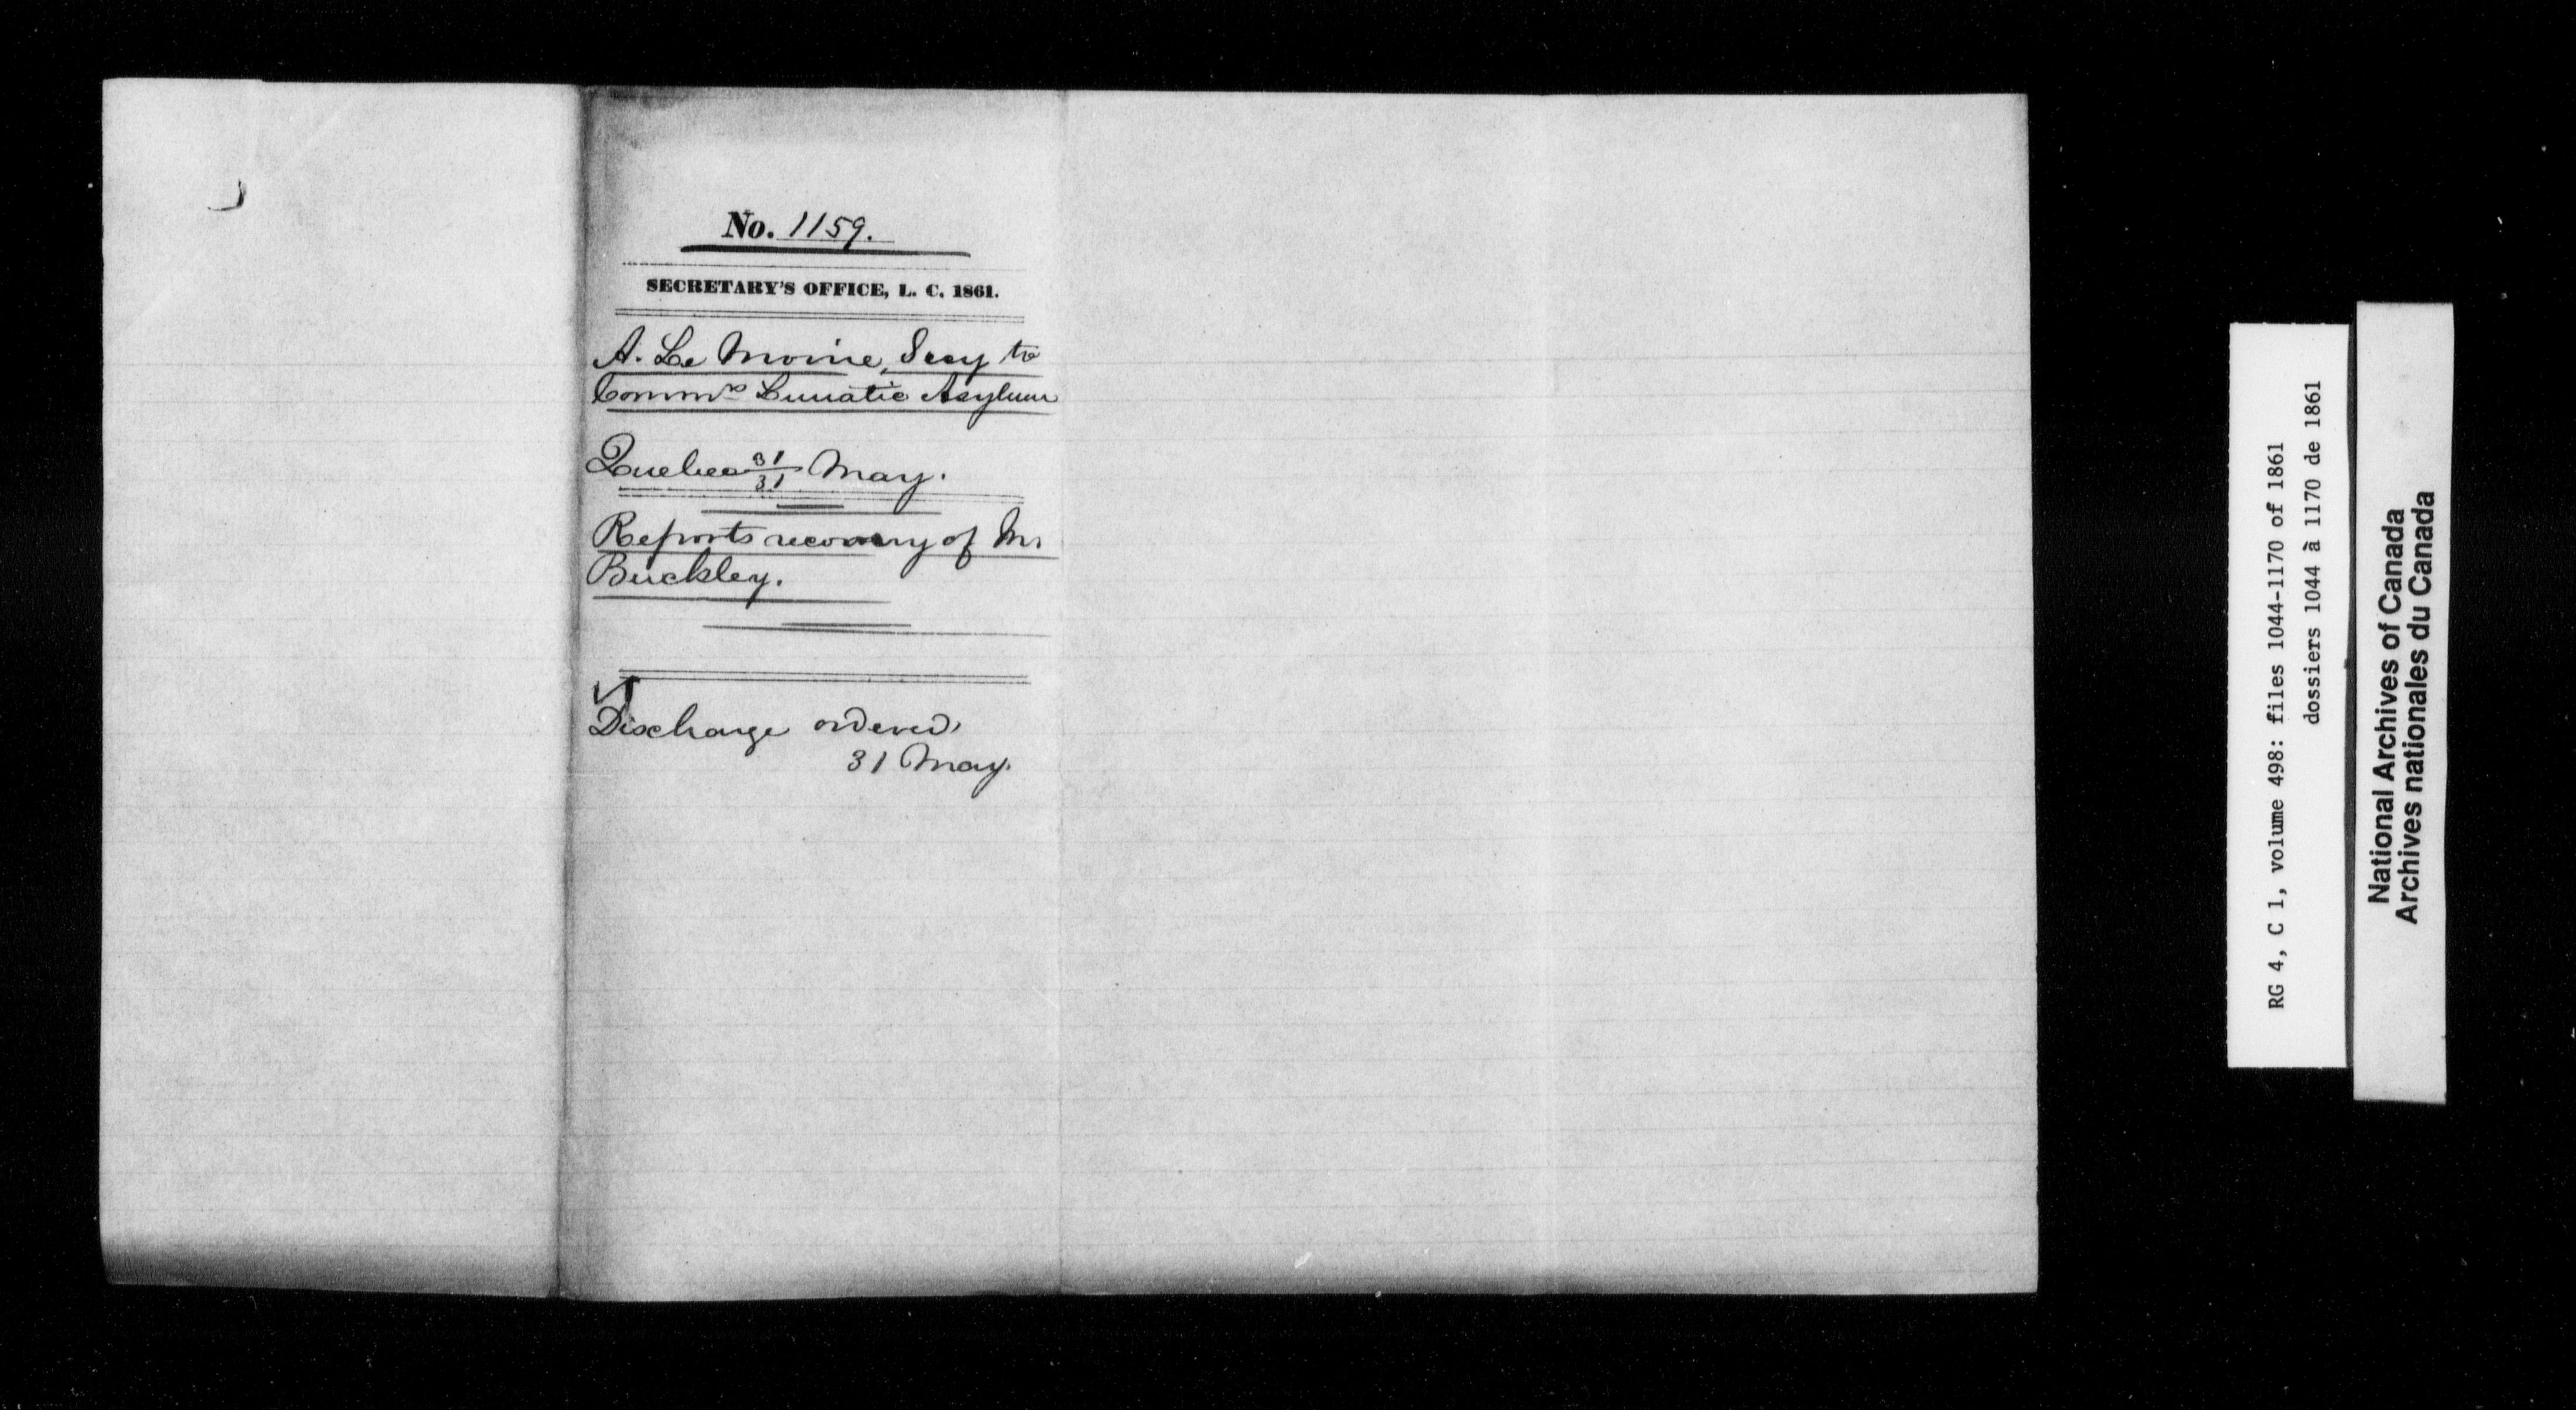 No. 1159.
SECRETARY'S OFFICE, L. C. 1861.
A. Le Moine, Secy to
Commrs Lunatic Asylum
Quebec 31/31 May.
Reports recovery of M.
Buckley.
Discharge ordered,
31 May.
RG 4, C 1, volume 498: files 1044-1170 of 1861
dossiers 1044 à 1170 de 1861
National Archives of Canada
Archives nationales du Canada